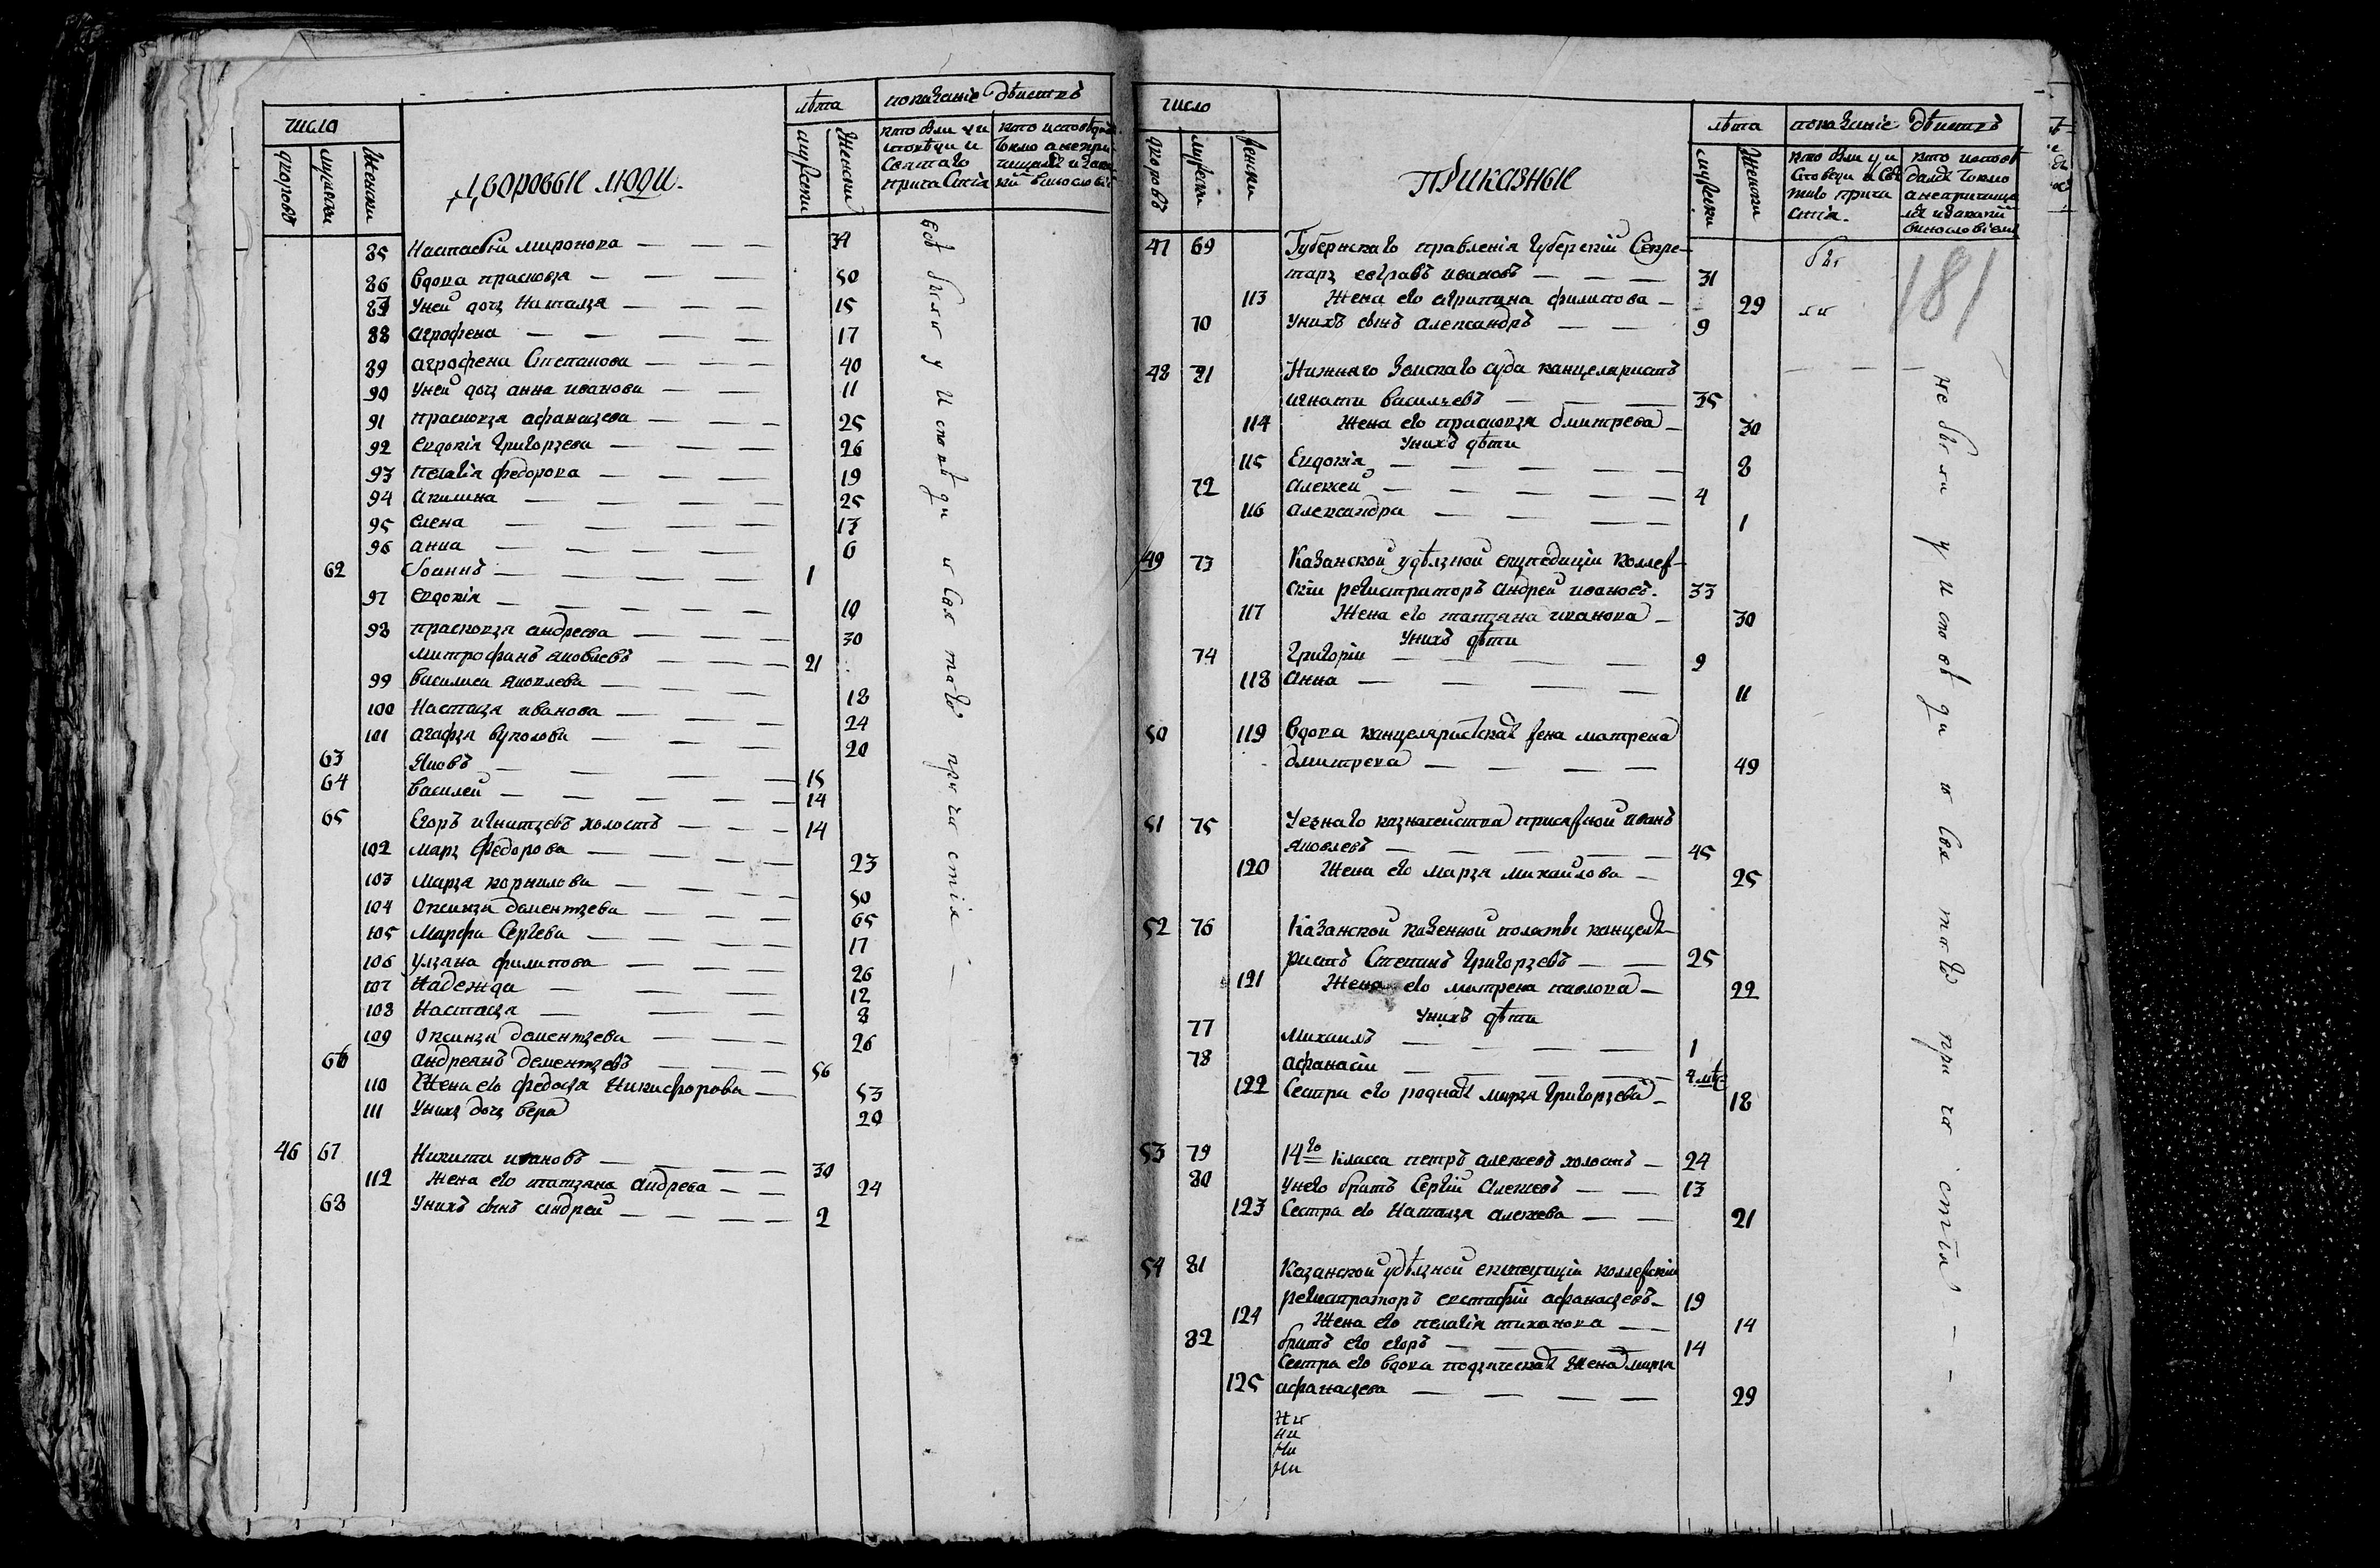 число
дворовъ
мужески
женски
дворовые люди.
лѣта
мужески
женски
показанiе дѣиствъ
кто были у исповѣди и святаго причастiя
85 Настасьiя миронова — — — 34
86 вдова прасковья — — — 50
87 унеи дочь Наталья — — — 15
88 агрофена — — — — 17
89 агрофена Степанова — — — 40
90 унеи дочь анна иванова — — 11
91 прасковья афанасьева — — — 25
92 евдокiя григорьева — — — 26
93 пелагiя федорова — — — 19
94 акилина — — — — 25
95 елена — — — — 13
96 анна — — — — — 6
62 Iоаннъ — — — — — 1
97 евдокiя — — — — — 10
98 прасковья андреева — — — 30
митрофанъ яковлевъ — — — 21
99 василиса яковлева — — — — 18
100 Настасья иванова — — — — 24
101 агафья вуколова — — — — 20
63 Яковъ — — — — — 15
64 василеи — — — — — 14
65 Егоръ игнатьевъ холостъ — — — 14
102 марья федорова — — — — 23
103 марья корнилова — — — — 50
104 Оксинья дементьева — — — 65
105 марфа Сергева — — — — 17
106 ульяна филипова — — — 26
107 Надежда — — — — 12
108 Настасья — — — — 8
109 Оксинья дементьева — — — 26
66 андреянъ дементьевъ — — — 56
110 Жена его федосья Никифорова — 53
111 Унихъ дочь вера 20
46 67 Никита ивановъ — — — — 30
112 Жена его татьяна андрева — — 24
68 Унихъ сынъ андреи — — — — 2
всѣ были у исповѣди и святаго причастiя —
число
дворовъ
мужески
женски
Приказные
лѣта
мужески
женски
показанiе дѣиствъ
181
47 69 Губернскаго правленiя губернскiи Секре-
тарь евграфъ ивановъ — — — 31
113 Жена его агрипина филипова — 29
70 Унихъ сынъ александръ — — 9
были
48 71 Нижняго Земскаго суда канцеляристъ
игнати васильевъ — — — 35
114 Жена его прасковья дмитрева — 30
Унихъ дѣти
115 Евдокiя — — — — — 8
72 алексеи — — — — — 4
116 александра — — — — 1
49 73 Казанской удѣльной експедицiи коллеж-
скiи регистраторъ андреи ивановъ. 33
117 Жена его татьяна иванова — 30
Унихъ дѣти
74 Григорiи — — — — 9
118 анна — — — — — 11
50 119 вдова канцеляристская жена матрена
дмитрева — — — — 49
51 75 Уезнаго казначеиства присяжнои иванъ
яковлевъ — — — — — 45
120 Жена его марья михаилова — 25
52 76 Казанской казенной полаты канцеля-
ристъ Степанъ Григорьевъ — — 25
121 Жена его матрена павлова — 22
Унихъ дѣти
77 Михаилъ — — — — 1
78 афанасiи — — — — 4 мѣс
122 Сестра его родная марья Григорьева — 18
53 79 14го класса петръ алексевъ холостъ — 24
80 Унего братъ Сергiи алексевъ — — 13
123 Сестра его Наталья алексева — — 21
54 81 Казанской удѣльной експедицiи коллежскiи
регистраторъ евстафiи афанасьевъ — 19
124 Жена его пелагiя тиханова — — 14
82 братъ его егоръ — — — — 14
Сестра его вдова подьяческая жена марья
125 афанасьева — — — — 29
Ни
Ни
Ни
Ни
не были у исповѣди и святаго причастiя — —